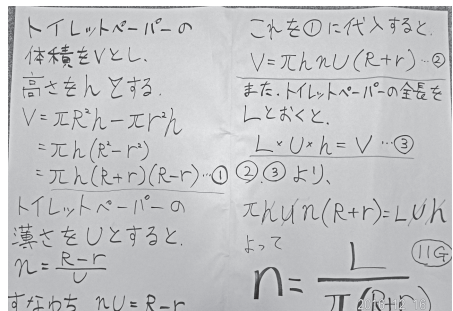 トイレットペーパーの
体積をVとし、
高さをhとする.
V=πR²h-πr²h
=πh(R²-r²)
=πh(R+r)(R-r)…①
トイレットペーパーの
薄さをUとすると.
n=(R-r)/U
すなわち nU=R-r
これを①に代入すると.
V=πhnU(R+r)…②
また、トイレットペーパーの全長を
Lとおくと、
L×U×h=V…③
②,③より、
πhUn(R+r)=LUh
よって
11G
n=L/π(R+r)